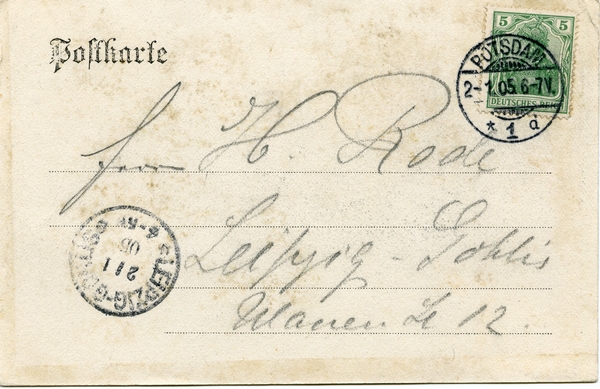 Postkarte
5 5
DEUTSCHES REICH
POTSDAM
2-1.05.6-7V.
* 1 d
Herrn H. Rode
Leipzig-Gohlis
LEIPZIG-GOHLIS
2/1
05
Ulanen
12.